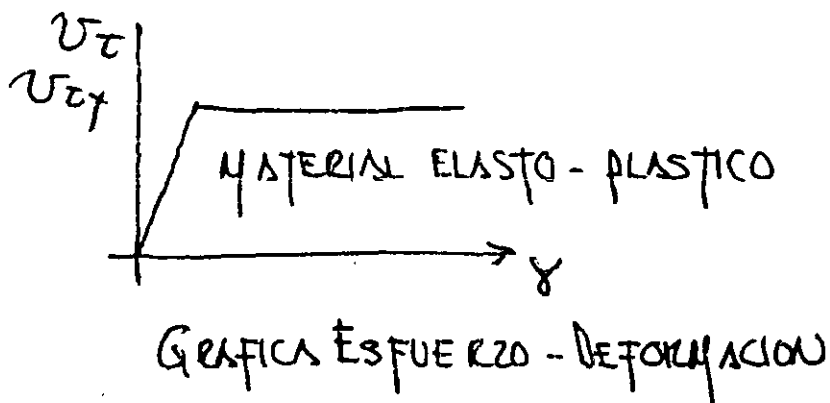 υτ
υτy
MATERIAL ELASTO - PLASTICO
γ
GRAFICA ESFUERZO - DEFORMACION